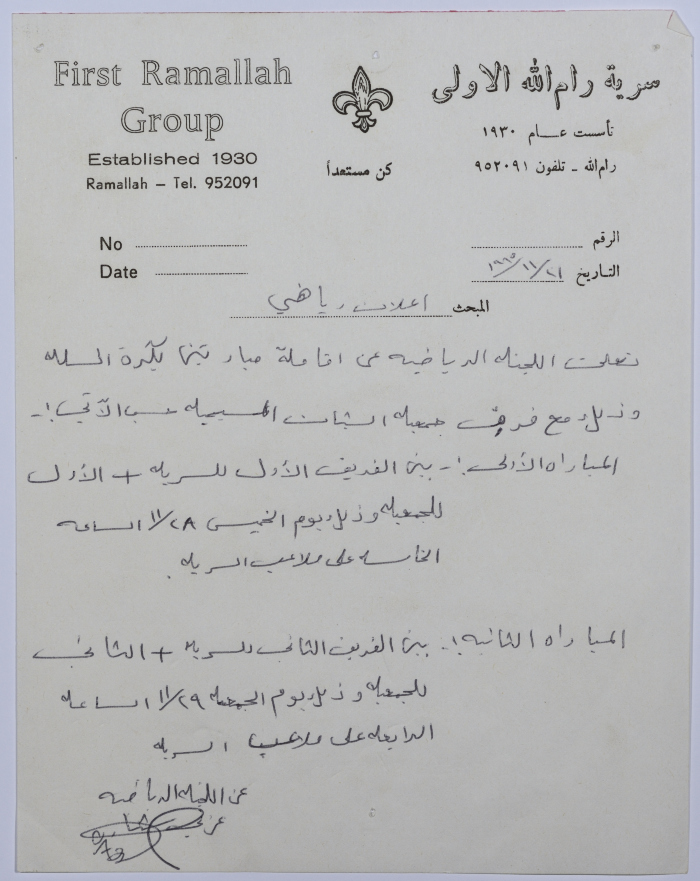 First Ramallah
Group
Established 1930
Ramallah – Tel. 952091
كن مستعداً
سرية رام الله الاولى
تأسست عـــام ١٩٣٠
رام الله ـ تلفون ٩٥٢٠٩١
No
Date
الرقم
التـاريخ ٢١/١١/
المبحث اعلان رياضي
تعلن اللجنه الرياضيه عن اقامة مبارتين بكرة السله
وذلك مع فريق جمعيه الشبان المسيحيه حسب الآتي :-
المباراه الأولى :- بين الفريق الأول للسريه + الأول
للجمعيه وذلك يوم الخميس ١١/٢٨ الساعه
الخامسه على ملاعب السريه .
المباراه الثانيه :- بين الفريق الثاني للسريه + الثاني
للجمعيه وذلك يوم الجمعه ١١/٢٩ الساعه
الرابعه على ملاعب السريه
عن اللجنه الرياضيه